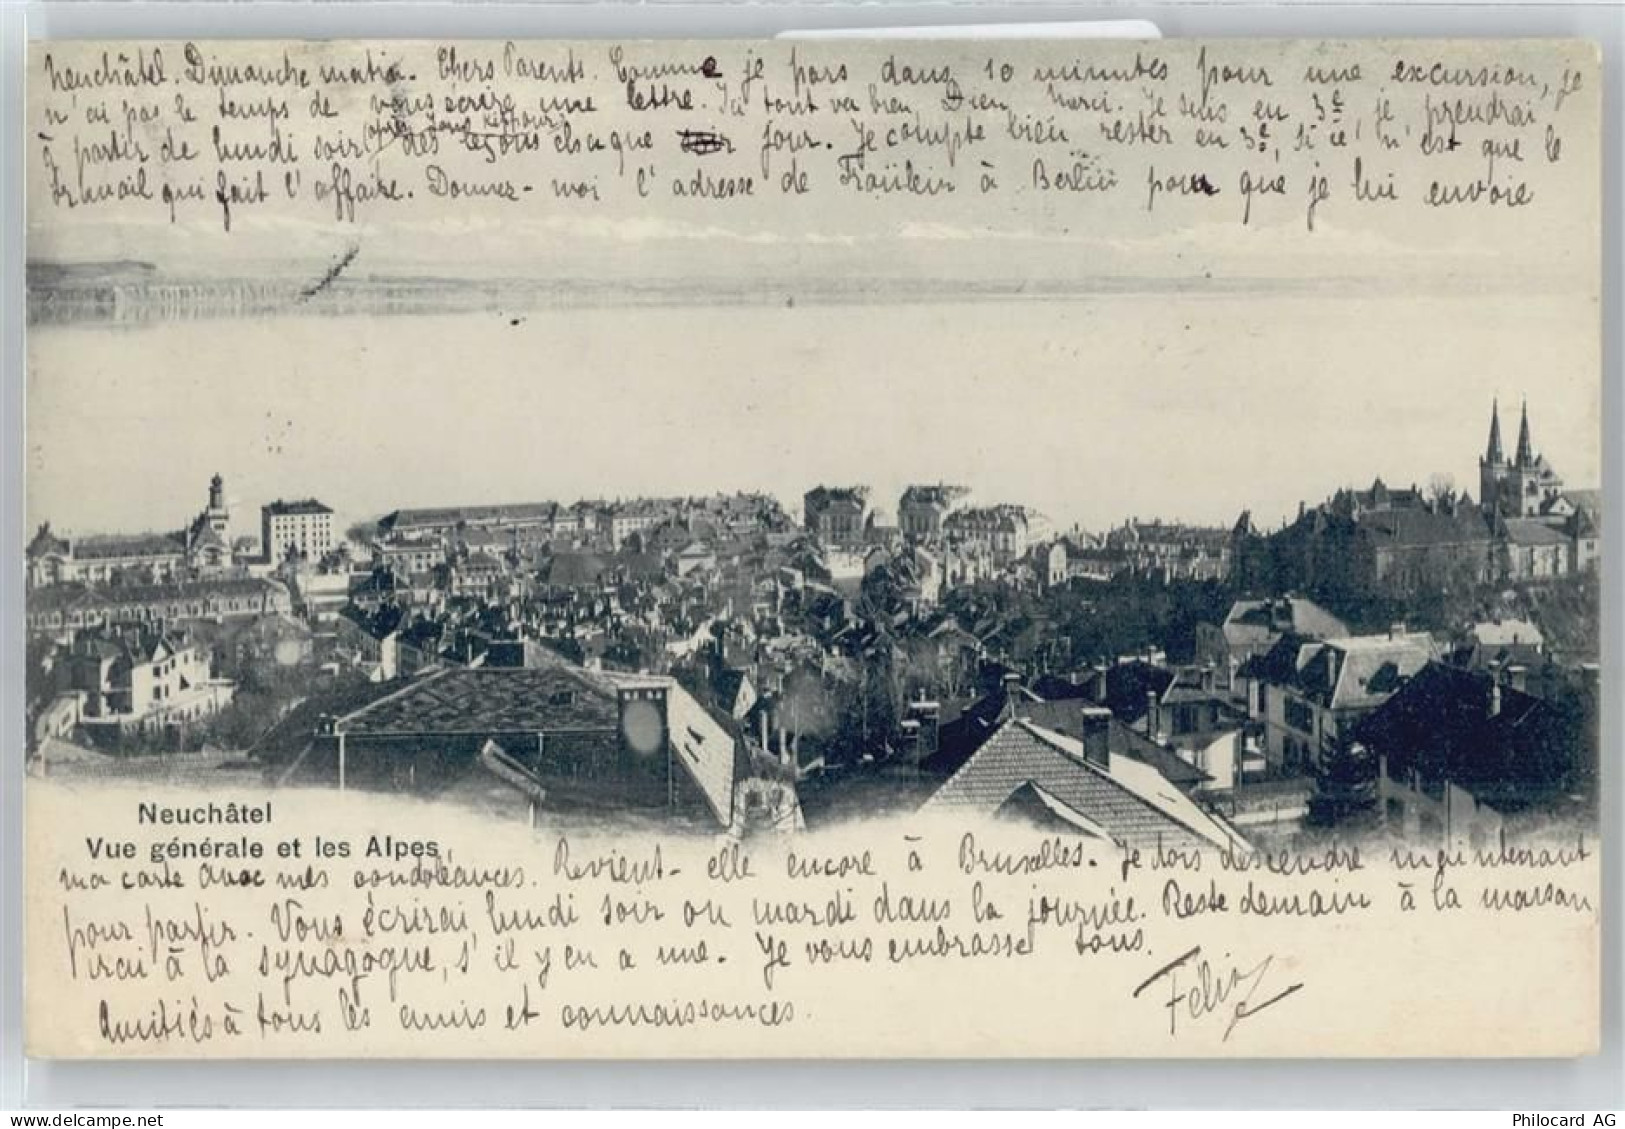 Neuchâtel. Dimanche matin. Chers Parents. Comme je pars dans 10 minutes pour une excursion, je
n'ai pas le temps de vous écrire une lettre. Ici tout va bien, Dieu merci. Je suis en 3e, je prendrai
(après Jour Kippour)
à partir de lundi soir des leçons chaque soir jour. Je compte bien rester en 3e, si ce n'est que le
travail qui fait l'affaire. Donnez-moi l'adresse de Fraülein à Berlin pour que je lui envoie
Neuchâtel
Vue générale et les Alpes
ma carte avec mes condoléances. Revient-elle encore à Bruxelles. Je dois descendre maintenant
pour partir. Vous écrirai lundi soir ou mardi dans la journée. Reste demain à la maison,
irai à la synagogue, s'il y en a une. Je vous embrasse tous.
Félix
Amitiés à tous les amis et connaissances.
www.delcampe.net
Philocard AG